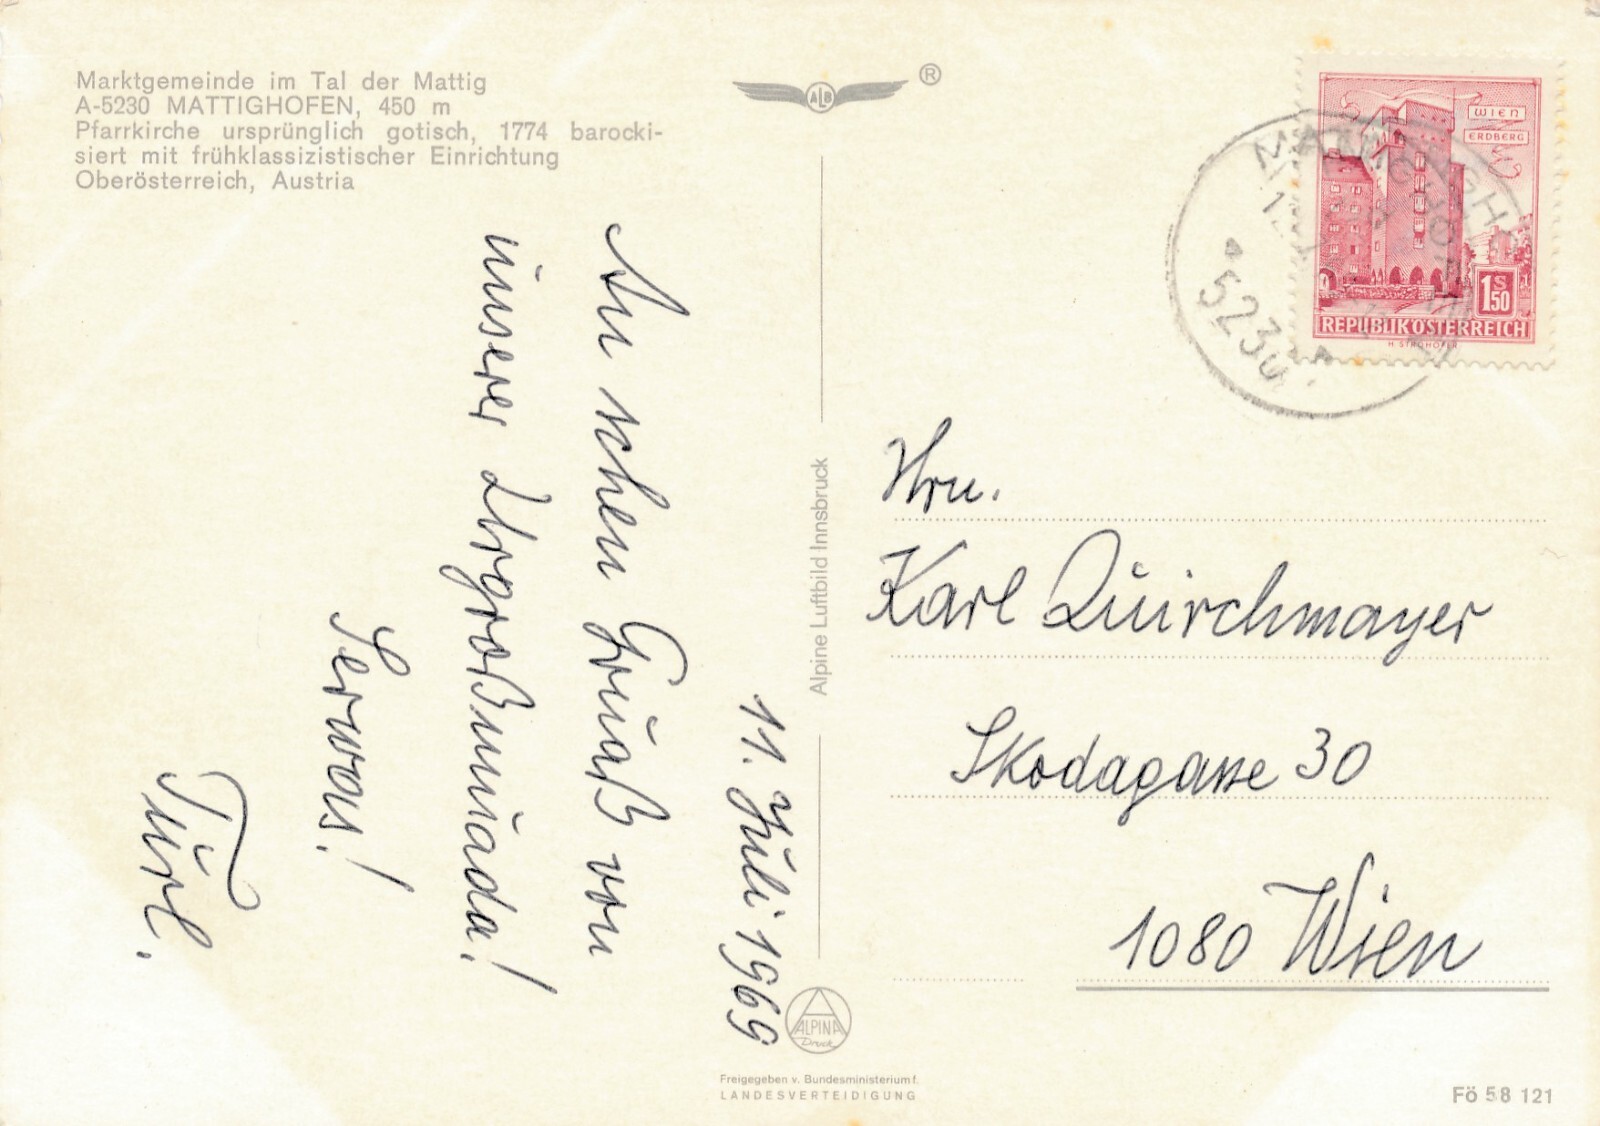 Marktgemeinde im Tal der Mattig
A-5230 MATTIGHOFEN, 450 m
Pfarrkirche ursprünglich gotisch, 1774 barocki-
siert mit frühklassizistischer Einrichtung
Oberösterreich, Austria
ALB
®
WIEN
ERDBERG
1 S 50
REPUBLIK ÖSTERREICH
H. STROHOFER
5230
11. Juli 1969
An schen Gruaß von
unserer Urgroßmuada!
Serwas!
Turl.
Alpine Luftbild Innsbruck
Hrn.
Karl Quirchmayer
Skodagasse 30
1080 Wien
ALPINA
Druck
Freigegeben v. Bundesministerium f.
LANDESVERTEIDIGUNG
Fö 58 121